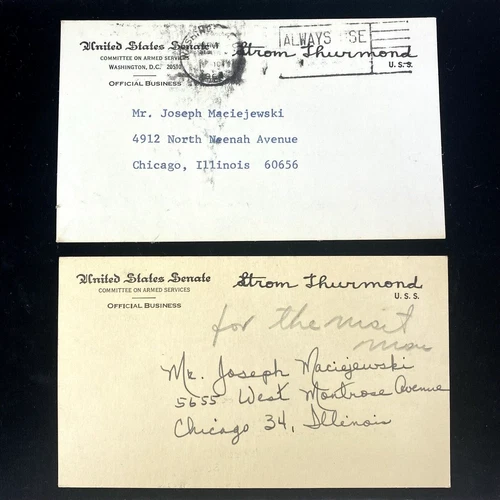 United States Senate
COMMITTEE ON ARMED SERVICES
WASHINGTON, D.C. 20510
OFFICIAL BUSINESS
Strom Thurmond
U.S.S.
ALWAYS USE
Mr. Joseph Maciejewski
4912 North Neenah Avenue
Chicago, Illinois 60656
United States Senate
COMMITTEE ON ARMED SERVICES
OFFICIAL BUSINESS
Strom Thurmond
U.S.S.
for the
Mr. Joseph Maciejewski
5655 West Montrose Avenue
Chicago 34, Illinois